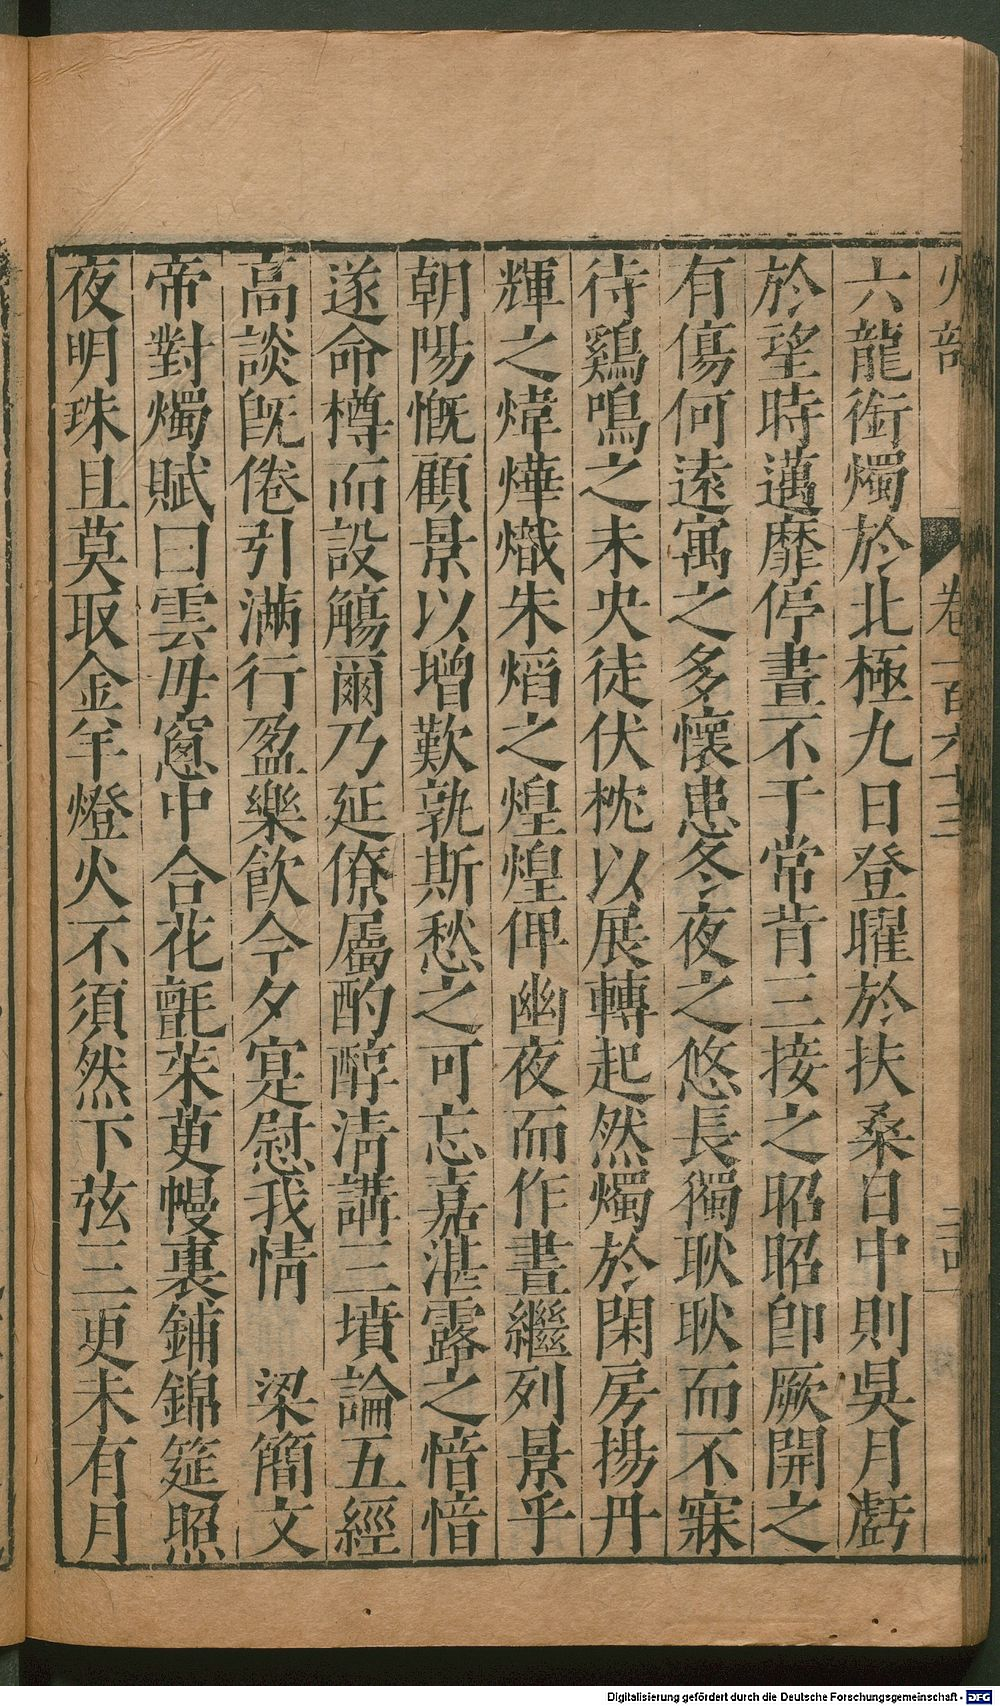 火部
卷一百六十三
六龍銜燭於北極九日登曜於扶桑日中則吳月虧
於望時邁靡停晝不干常背三接之昭昭卽厥開之
有傷何遠寓之多懷患冬夜之悠長獨耿耿而不寐
待鷄鳴之未央徒伏枕以展轉起然燭於閑房揚丹
輝之煒燁熾朱熖之煌煌俾幽夜而作晝繼列景乎
朝陽慨顧景以增歎孰斯愁之可忘嘉湛露之愔愔
遂命樽而設觴爾乃延僚屬酌醇清講三墳論五經
高談旣倦引滿行盈樂飮今夕寔慰我情　梁簡文
帝對燭賦曰雲毋窻中合花氈茱萸幔裏鋪錦筵照
夜明珠且莫取金羊燈火不須然下弦三更未有月
Digitalisierung gefördert durch die Deutsche Forschungsgemeinschaft - DFG